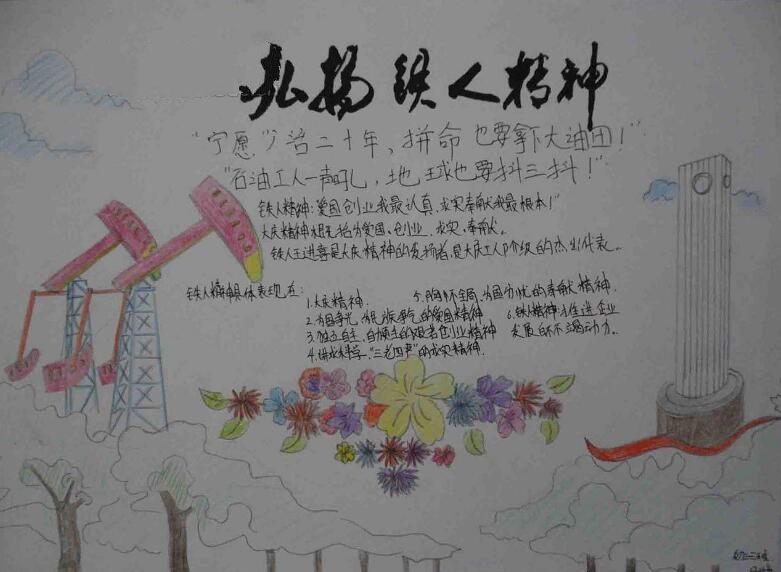 弘扬铁人精神
"宁愿"少活二十年，拼命也要拿下大油田！"
"石油工人一声吼，地球也要抖三抖！"
铁人精神：爱国创业我最认真，求实奉献我最根本！"
大庆精神概括为爱国、创业、求实、奉献。
铁人王进喜是大庆精神的发扬者，是大庆工人阶级的杰出代表。
铁人精神具体表现在：
1.大庆精神.
2.为国争光、为民族争气的爱国精神
3.独立自主、自力更生的艰苦创业精神
4.讲求科学、"三老四严"的求实精神.
5.胸怀全局、为国分忧的奉献精神.
6.铁人精神是推进企业
发展的不竭动力。